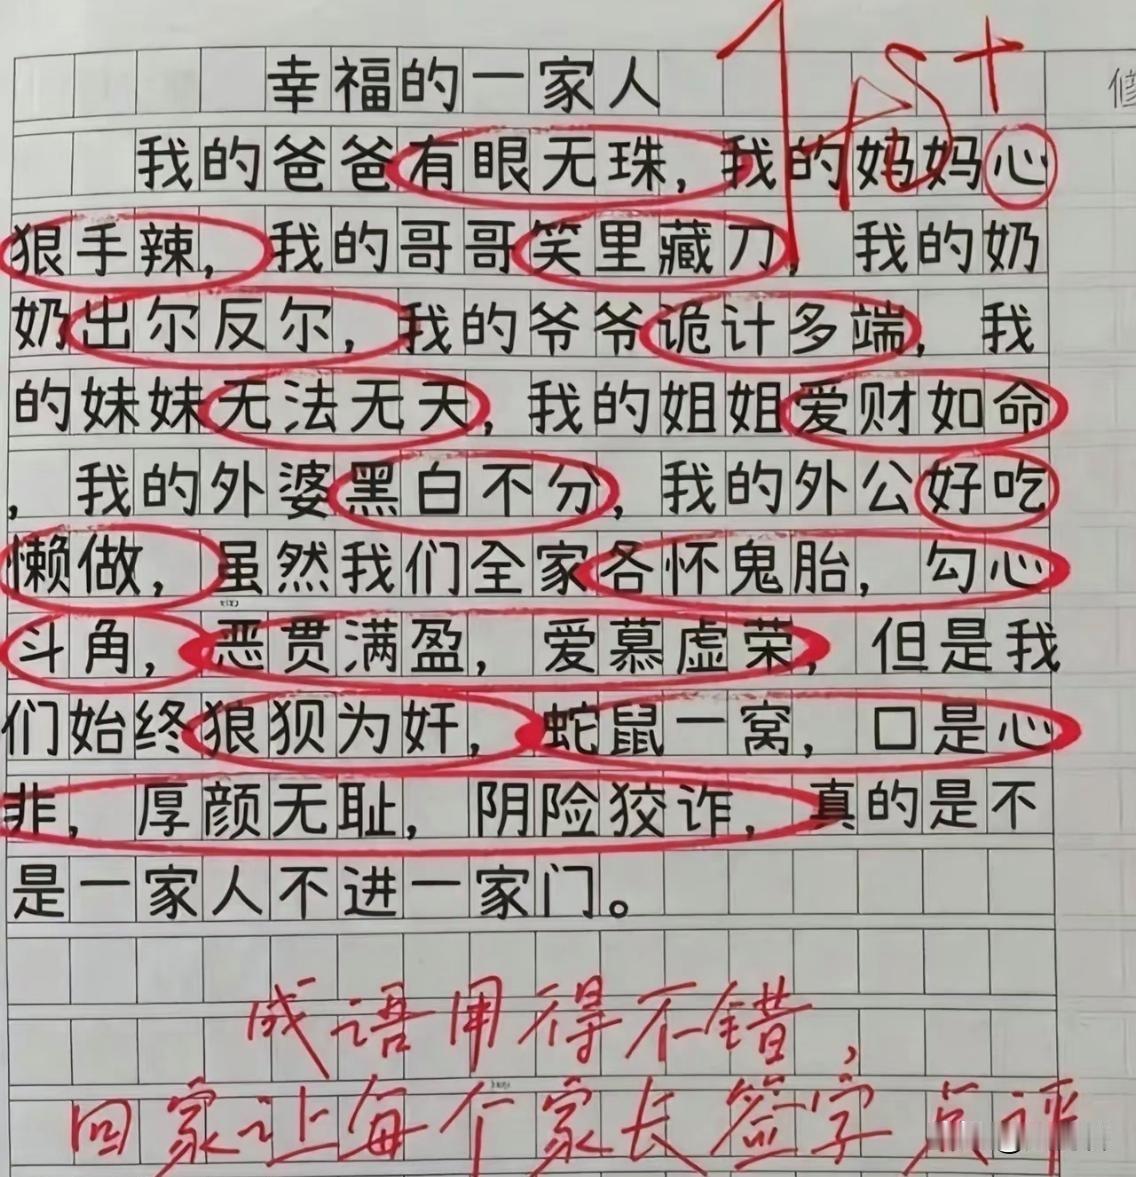 幸福的一家人
我的爸爸有眼无珠，我的妈妈心
狠手辣，我的哥哥笑里藏刀，我的奶
奶出尔反尔，我的爷爷诡计多端，我
的妹妹无法无天，我的姐姐爱财如命
，我的外婆黑白不分，我的外公好吃
懒做，虽然我们全家各怀鬼胎，勾心
斗角，恶贯满盈，爱慕虚荣，但是我
们始终狼狈为奸，蛇鼠一窝，口是心
非，厚颜无耻，阴险狡诈，真的是不
是一家人不进一家门。
成语用得不错，
回家让每个家长签字点评